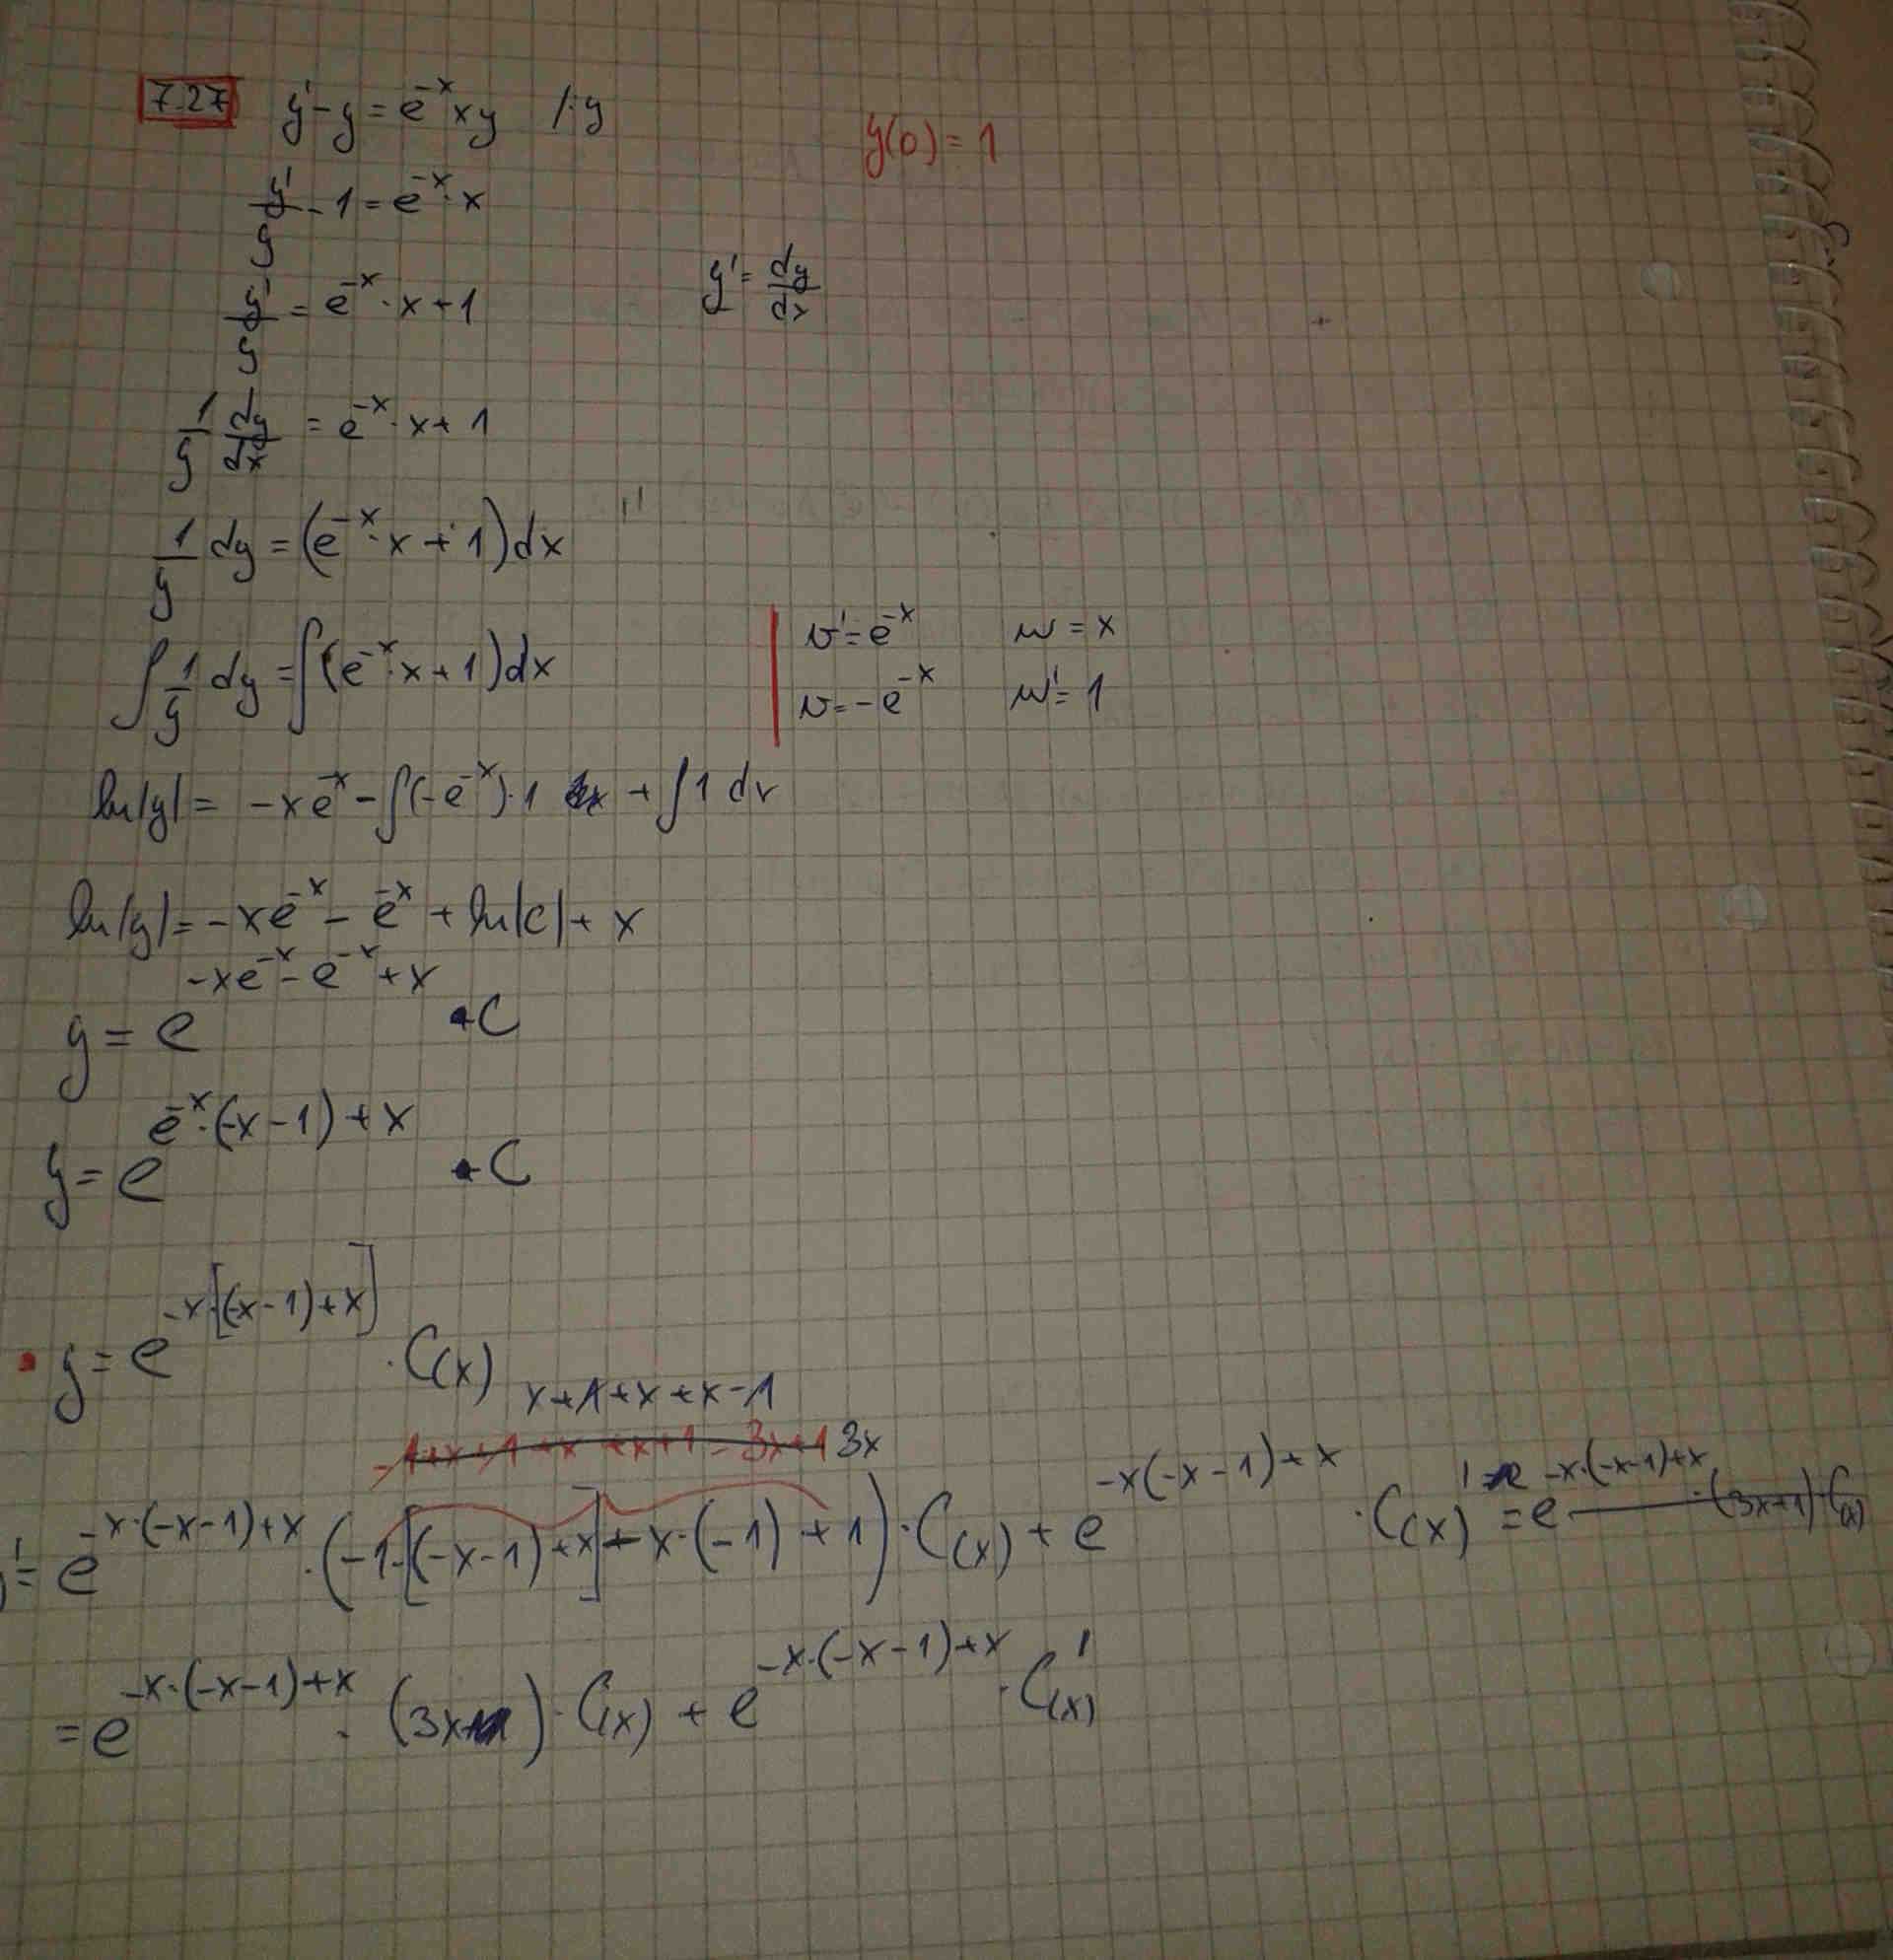 7.27 y' - y = e^{-x} x y /:y
y(0) = 1
y'/y - 1 = e^{-x} · x
y'/y = e^{-x} · x + 1
y' = dy/dx
1/y dy/dx = e^{-x} · x + 1
1/y dy = (e^{-x} · x + 1) dx
∫ 1/y dy = ∫ (e^{-x} · x + 1) dx
v' = e^{-x} u = x
v = -e^{-x} u' = 1
ln|y| = -x e^{-x} - ∫ (-e^{-x}) · 1 dx + ∫ 1 dx
ln|y| = -x e^{-x} - e^{-x} + ln|C| + x
y = e^{-x e^{-x} - e^{-x} + x} · C
y = e^{e^{-x} · (-x-1) + x} · C
y = e^{-x · [(-x-1) + x]} · C(x)
x + 1 + x + x - 1
3x
y' = e^{-x · (-x-1) + x} · (-1 · [(-x-1) + x] + x · (-1) + 1) · C(x) + e^{-x(-x-1) + x} · C(x)' = e^{-x · (-x-1) + x} · (3x+1) · C(x)
= e^{-x · (-x-1) + x} · (3x) · C(x) + e^{-x · (-x-1) + x} · C'(x)